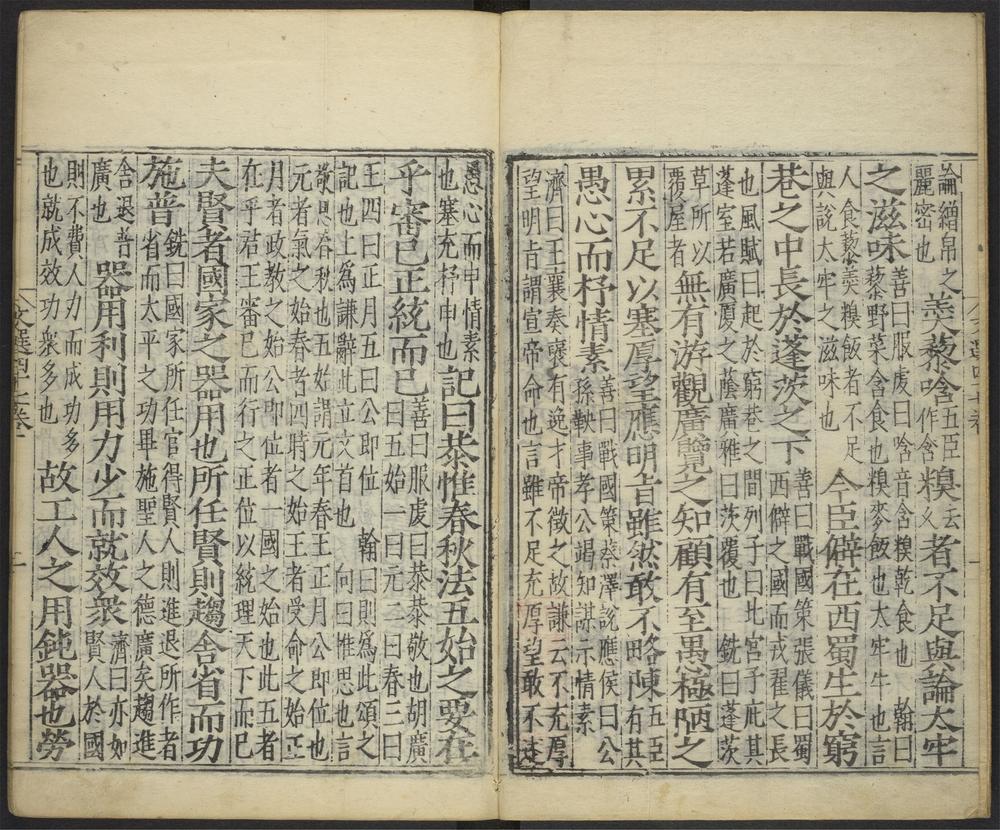 論繒帛之麗密也羡藜唅五臣作含糗者不足與論太牢
之滋味善曰服虔曰唅音含糗乾食也 翰曰
藜野菜含食也糗麥飯也太牢牛也言
人食藜羹糗飯者不足與說太牢之滋味也今臣僻在西蜀生於窮
巷之中長於蓬茨之下善曰戰國策張儀曰蜀西僻之國而戎翟之長
也風賦曰起於窮巷之間列子曰北宮子庇其
蓬室若廣厦之蔭廣雅曰茨覆也 銑曰蓬茨
草所以覆屋者無有游觀廣覽之知顧有至愚極陋之
累不足以塞厚望應明旨雖然敢不略陳五臣有其
愚心而抒情素善曰戰國策蔡澤說應侯曰公孫鞅事孝公竭知謀示情素
濟曰王襄奏襃有逸才帝徵之故謙云不充厚
望明旨謂宣帝命也言雖不足充厚望敢不述
愚心而申情素也塞充抒申也記曰恭惟春秋法五始之要在
乎審己正統而已善曰服虔曰恭敬也胡廣曰五始一曰元二曰春三曰
王四曰正月五曰公即位 翰曰則爲此頌之
記也上爲謙辭此立文首也 向曰惟思也言
敬思春秋也五始謂元年春王正月公即位也
元者氣之始春者四時之始王者受命之始正
月者政教之始公即位者一國之始也此五者
在乎君王審己而行之正位以統理天下而已
夫賢者國家之器用也所任賢則趨舍省而功
施普銑曰國家所任官得賢人則進退所作者省而太平之功畢施聖人之德廣矣趨進
舍退普廣也器用利則用力少而就效衆濟曰亦如賢人於國
則不費人力而成功多也就成效功衆多也故工人之用鈍器也勞